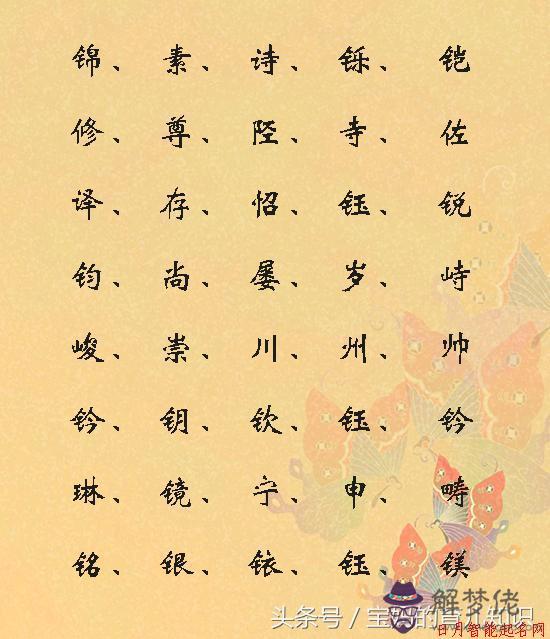 锦、素、诗、铄、铠
修、尊、陞、寺、佐
泽、存、怊、钰、锐
钧、尚、屡、岁、峙
峻、崇、川、州、帅
钤、钥、钦、钰、钤
琳、镜、宁、申、畴
铭、银、铱、钰、镁
解梦佬
头条号／宝妈的育儿知识
日月智能起名网